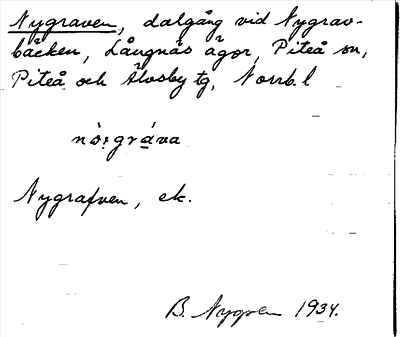 Nygraven, dalgång vid Nygrav-
bäcken, Långnäs ägor, Piteå sn,
Piteå och Älvsby tg, Norrb. l
nò:gráva
Nygrafven, ek.
B. Nygren 1934.